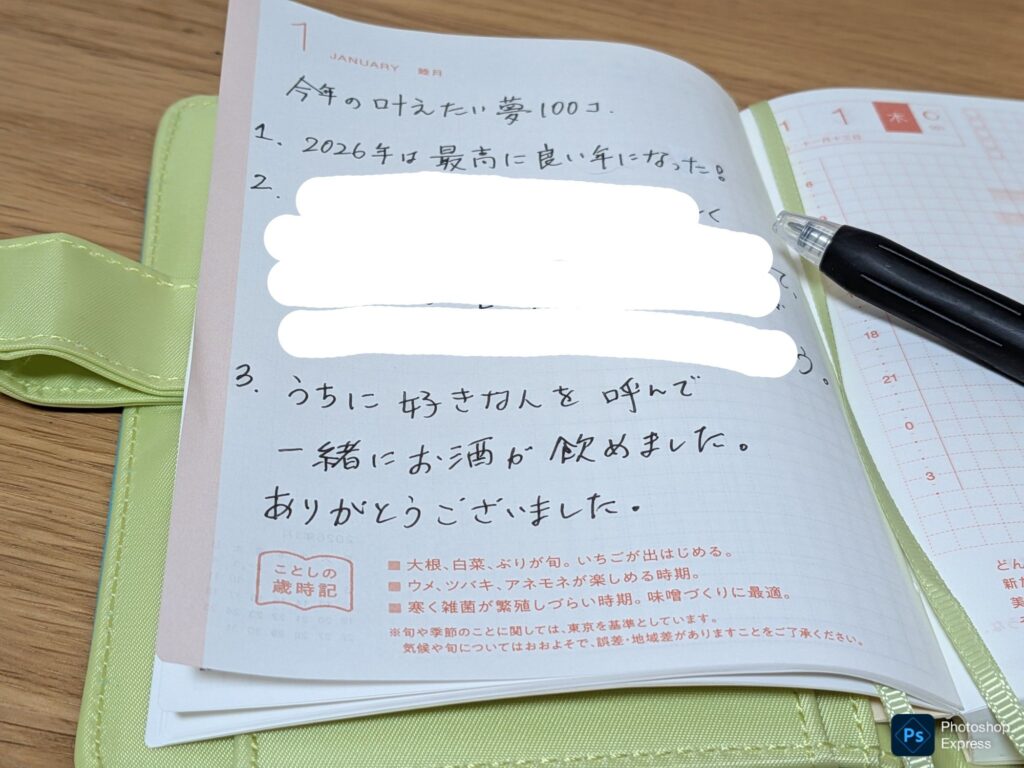 1 JANUARY 睦月
今年の叶えたい夢100コ.
1. 2026年は最高に良い年になった!
2.
く
て、
う。
3. うちに好きな人を呼んで
一緒にお酒が飲めました。
ありがとうございました。
ことしの
歳時記
■ 大根、白菜、ぶりが旬。いちごが出はじめる。
■ ウメ、ツバキ、アネモネが楽しめる時期。
■ 寒く雑菌が繁殖しづらい時期。味噌づくりに最適。
※旬や季節のことに関しては、東京を基準としています。
気候や旬についてはおおよそで、誤差・地域差がありますことをご了承ください。
1 木
十一月十三日
6
18
21
0
3
どん
新た
美
Ps Photoshop
Express